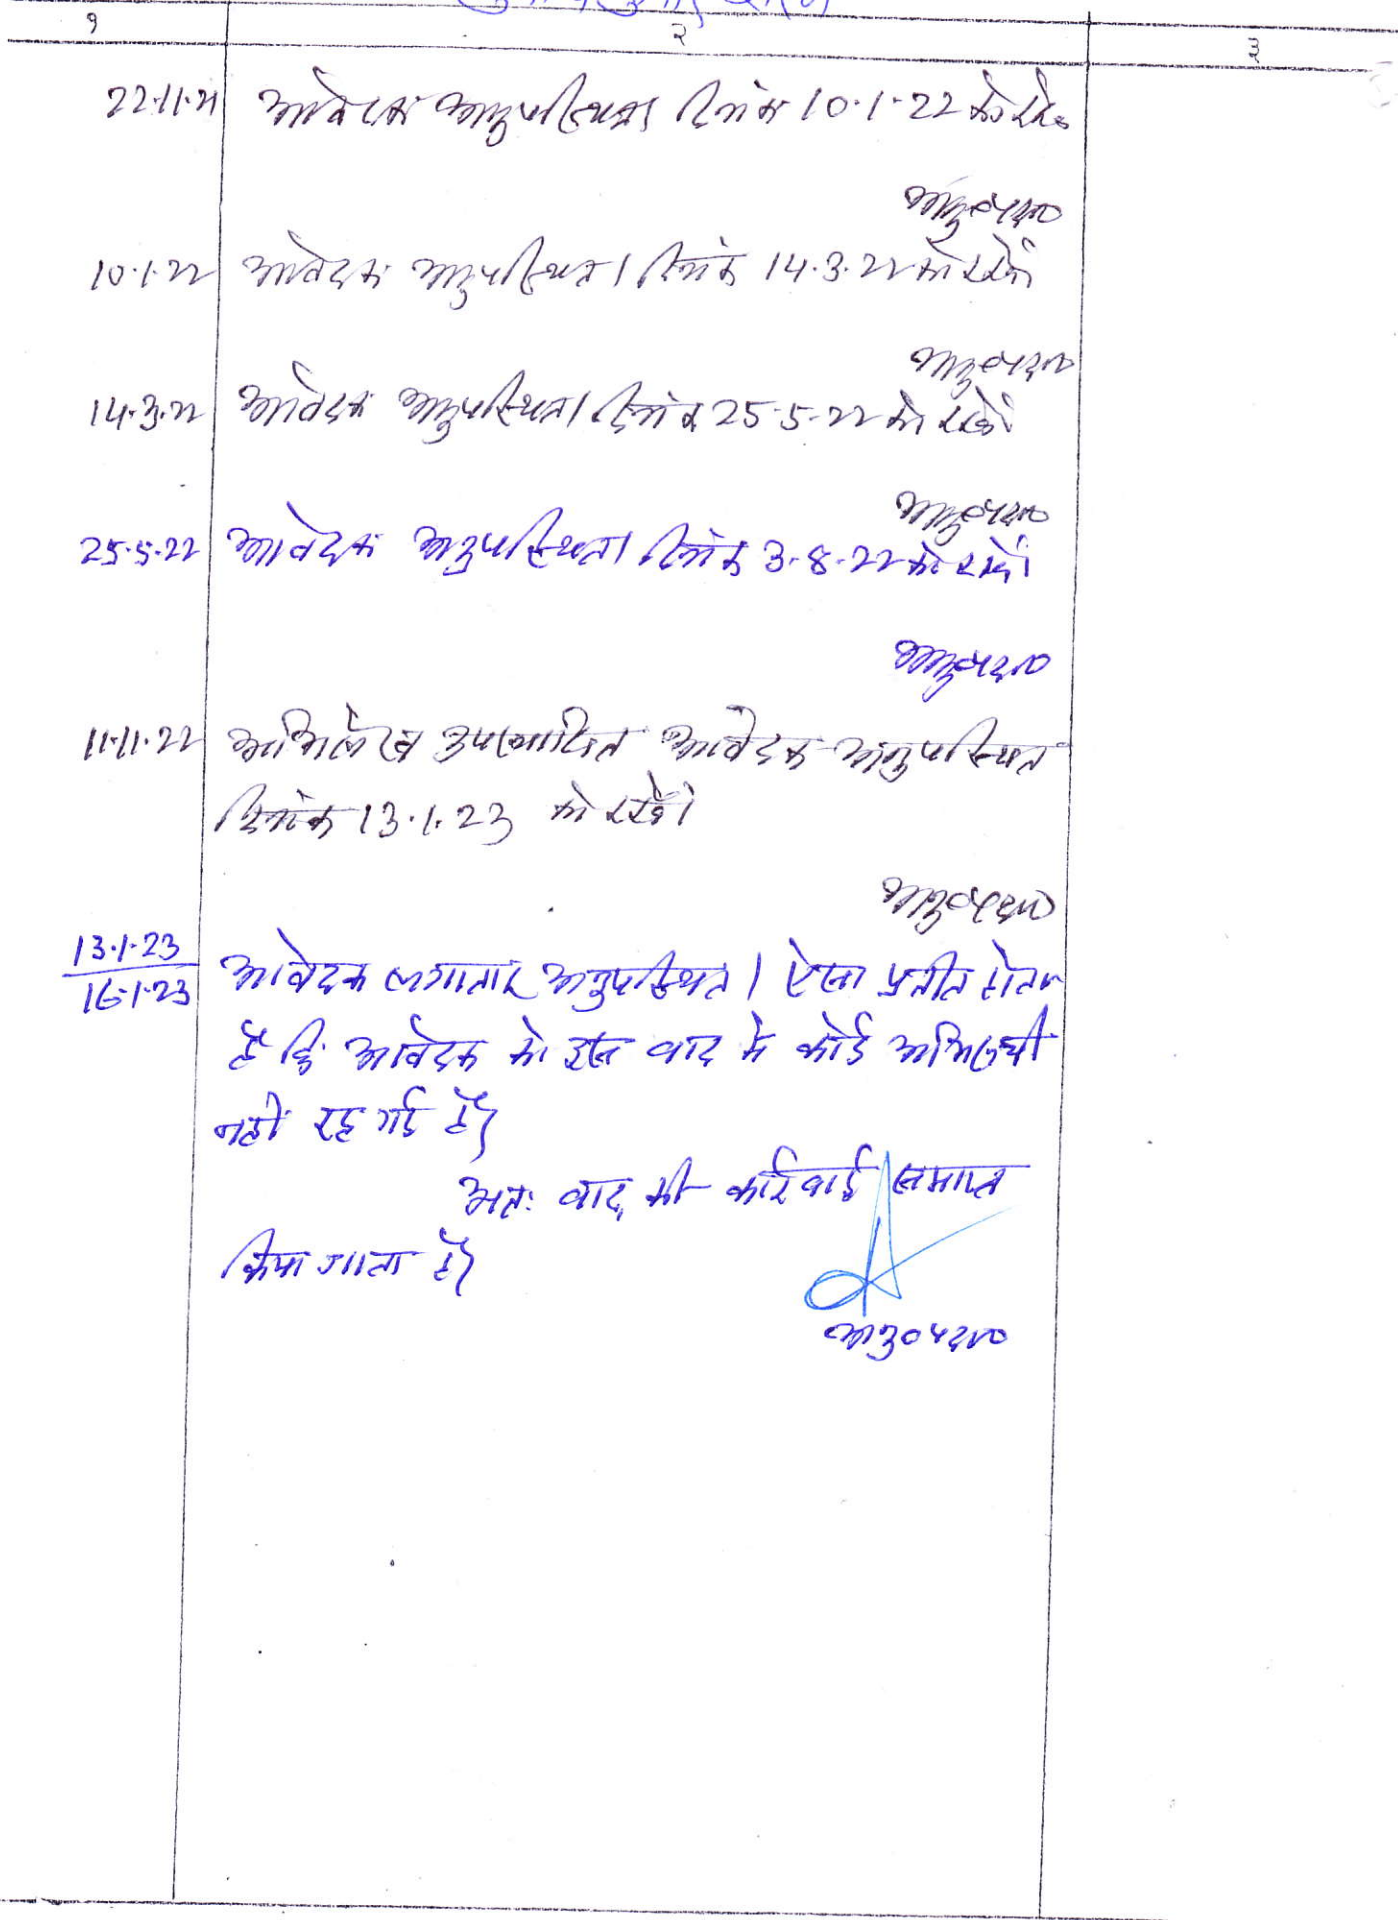 १ २ ३
22.11.21 आवेदक अनुपस्थित। दिनांक 10.1.22 को रखें
अनु०पदा०
10.1.22 आवेदक अनुपस्थित। दिनांक 14.3.22 को रखें।
अनु०पदा०
14.3.22 आवेदक अनुपस्थित। दिनांक 25.5.22 को रखें।
अनु०पदा०
25.5.22 आवेदक अनुपस्थित। दिनांक 3.8.22 को रखें।
अनु०पदा०
11.11.22 अभिलेख उपस्थापित आवेदक अनुपस्थित
दिनांक 13.1.23 को रखें।
अनु०पदा०
13.1.23
16.1.23 आवेदक लगातार अनुपस्थित। ऐसा प्रतीत होता
है कि आवेदक को इस वाद में कोई अभिरूची
नहीं रह गई है।
अतः वाद की कार्रवाई समाप्त
किया जाता है।
अनु०पदा०